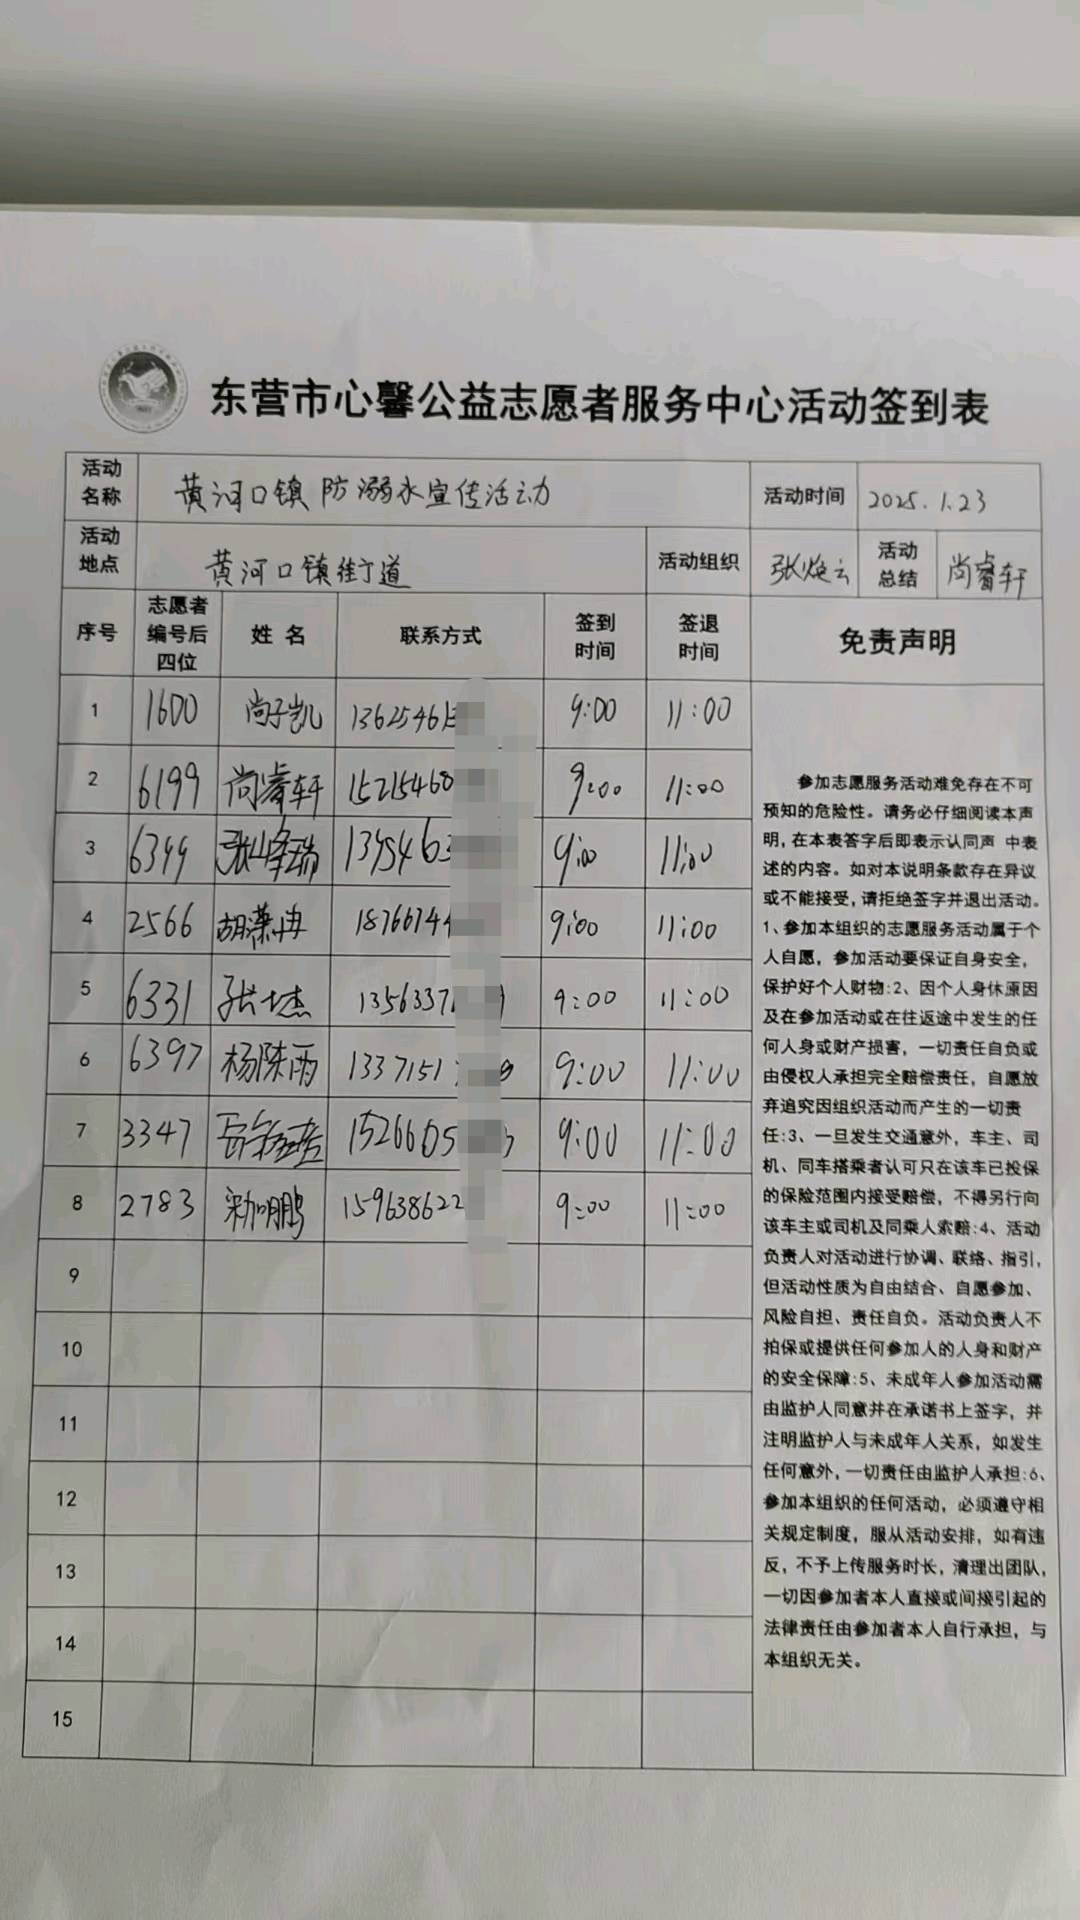 东营市心馨公益志愿者服务中心活动签到表
活动名称 黄河口镇防溺水宣传活动 活动时间 2025.1.23
活动地点 黄河口镇街道 活动组织 张焕云 活动总结 尚睿轩
序号 志愿者编号后四位 姓名 联系方式 签到时间 签退时间 免责声明
1 1600 尚子凯 13625461 9:00 11:00
2 6199 尚睿轩 15215460 9:00 11:00
3 6399 张峰瑞 1395463 9:00 11:00
4 2566 胡潇冉 1876674 9:00 11:00
5 6331 张士杰 1356337 9:00 11:00
6 6397 杨陈雨 1337151 9:00 11:00
7 3347 1526605 9:00 11:00
8 2783 鹏 159638622 9:00 11:00
9
10
11
12
13
14
15
参加志愿服务活动难免存在不可
预知的危险性。请务必仔细阅读本声
明,在本表答字后即表示认同声 中表
述的内容。如对本说明条款存在异议
或不能接受,请拒绝签字并退出活动。
1、参加本组织的志愿服务活动属于个
人自愿，参加活动要保证自身安全，
保护好个人财物:2、因个人身体原因
及在参加活动或在往返途中发生的任
何人身或财产损害，一切责任自负或
由侵权人承担完全赔偿责任，自愿放
弃追究因组织活动而产生的一切责
任:3、一旦发生交通意外，车主、司
机、同车搭乘者认可只在该车已投保
的保险范围内接受赔偿，不得另行向
该车主或司机及同乘人索赔:4、活动
负责人对活动进行协调、联络、指引，
但活动性质为自由结合、自愿参加、
风险自担、责任自负。活动负责人不
拍保或提供任何参加人的人身和财产
的安全保障:5、未成年人参加活动需
由监护人同意并在承诺书上签字，并
注明监护人与未成年人关系，如发生
任何意外,一切责任由监护人承担:6、
参加本组织的任何活动，必须遵守相
关规定制度，服从活动安排，如有违
反，不予上传服务时长，清理出团队，
一切因参加者本人直接或间接引起的
法律责任由参加者本人自行承担，与
本组织无关。